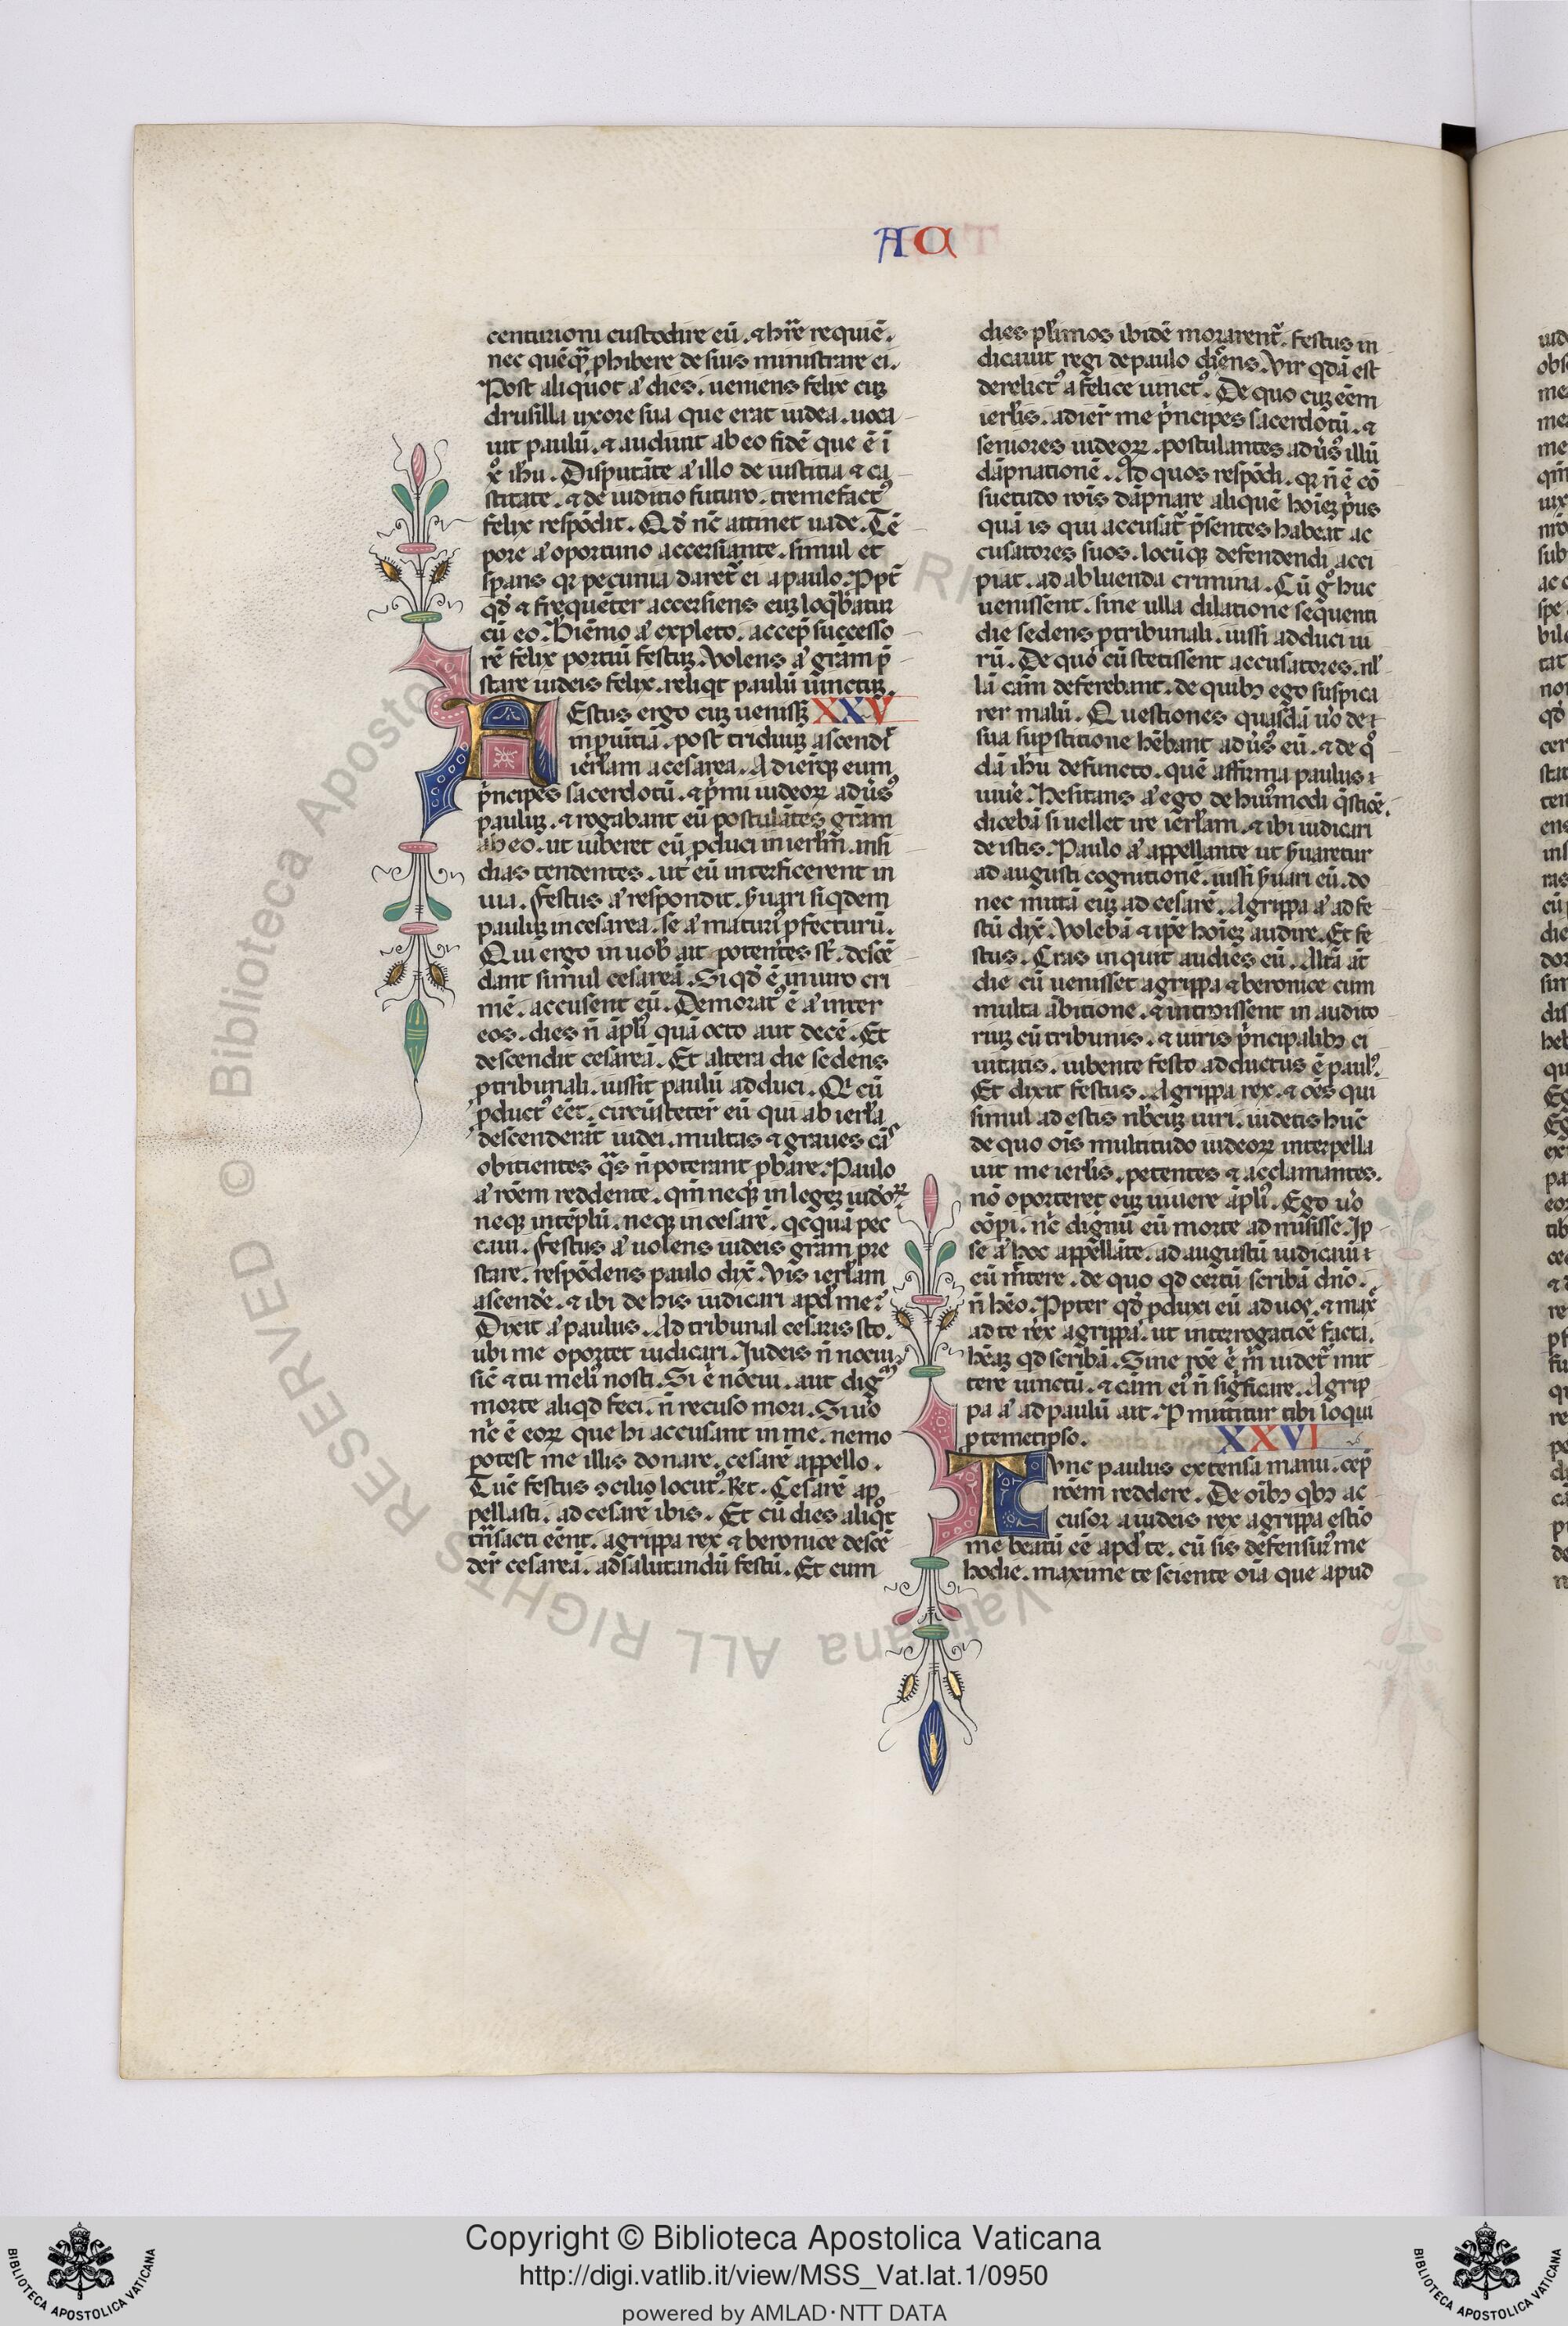 A C
centurioni custodire eū. ⁊ hr̄e requiē.
nec quēqȝ ꝓhibere de suis ministrare ei.
Post aliquot a' dies. ueniens felix cuȝ
drusilla uxore sua que erat iudea. uoca
uit paulū. ⁊ audiuit ab eo fidē que ē ī
xp̄o ih̄u. Disputāte a' illo de iustitia ⁊ ca
stitate. ⁊ de iuditio futuro. tremefactꝰ
felix respōdit. Qd̓ nc̄ attinet uade. Tē
pore a' oportuno accersiam te. simul et
sperans qꝛ pecunia daret̄ ei a paulo. Ppt̄
qd̓ ⁊ frequēter accersiens euȝ loqb̄atur
cū eo. Biēnio a' expleto. accep̄ successo
rē felix portiū festuȝ. Volens a' grām p̄
stare iudeis felix. reliqt paulū uinctuȝ.
Festus ergo cuȝ uenissȝ XXV
in ꝓuītiā. post triduuȝ ascendit
ierl̄am a cesarea. Adierūtqȝ eum
pⁱncipes sacerdotū. ⁊ pⁱmi iudeoꝝ adūsꝰ
pauluȝ. ⁊ rogabant eū postulātes grām
ab eo. ut iuberet eū ꝑduci in ierl̄m. insi
dias tendentes. ut eū interficerent in
uia. Festus a' respondit. ẜuari siqdem
pauluȝ in cesarea. se a' maturiꝰ ꝓfecturū.
Qui ergo in uob̄ ait potentes st̄. descē
dant simul cesareā. Si qd̓ ē in uiro cri
mē. accusent eū. Demoratꝰ ē a' inter
eos. dies n̄ āplꝰ quā octo aut decē. Et
descendit cesareā. Et altera die sedens
ꝓ tribunali. iussit paulū adduci. Qi cū
ꝑductꝰ eēt. circūsteter̄ eū qui ab ierl̄a
descenderāt iudei. multas ⁊ graues cās
obitientes qᵃs n̄ poterant ꝓbare. Paulo
a' rōem reddente. qm̄ neqȝ in legeȝ iudoꝝ
neqȝ in tēplū. neqȝ in cesarē. qcquā pec
caui. Festus a' uolens iudeis grām pre
stare. respōdens paulo dix̄. Vis ierl̄am
ascend̓e. ⁊ ibi de his iudicari apd̓ me?
Dixit a' paulus. Ad tribunal cesaris sto.
ubi me oportet iudicari. Iudeis n̄ nocui.
sic̄ ⁊ tu meliꝰ nosti. Si .n. nōcui. aut digᵐ
morte aliqd feci. n̄ recuso mori. Si uo
nⁱc ē eoꝝ que hi accusant in me. nemo
potest me illis donare. cesarē appello.
Tūc festus ꝯcilio locutꝰ. Rt. Cesarē ap
pellasti. ad cesarē ibis. Et cū dies aliqᵒt
trāsacti eēnt. agrippa rex ⁊ beronice descē
der̄ cesareā. ad salutandū festū. Et cum
dies plⁱmos ibidē morarent̄. Festus in
dicauit regi de paulo dicens. Vir qdā est
derelictꝰ a felice uinctꝰ. De quo cuȝ eēm
ierl̄is. adier̄ me pⁱncipes sacerdotū. ⁊
seniores iudeoꝝ. postulantes adūsꝰ illū
dāpnationē. Ad quos respōdi. qꝛ n̄ ē cō
suetudo rōis dāpnare aliquē hoīeȝ pⁱus
quā is qui accusat̄ p̄sentes habeat ac
cusatores suos. locūqȝ defendendi acci
piat. ad abluenda crimina. Cū gͦ huc
uenissent. sine ulla dilatione sequenti
die sedens ꝓ tribunali. iussi adduci ui
rū. De quo cū stetissent accusatores. nl̄
lā cām deferebant. de quibꝫ ego suspica
rer malū. Questiones quasdā uo de
sua suꝑstitione hēbant adūsꝰ eū. ⁊ de qᵒ
dā ih̄u defuncto. quē affirma paulus
uiue. Hesitans a' ego de huiꝰmodi q̄stiōe.
dicebā si uellet ire ierl̄am. ⁊ ibi iudicari
de istis. Paulo a' appellante ut ẜuaretur
ad augusti cognitionē. iussi ẜuari eū. do
nec mittā euȝ ad cesarē. Agrippa a' ad fe
stū dix̄. Volebā ⁊ ipe hoīeȝ audire. Et fe
stus. Cras inquit audies eū. Altā at̄
die cū uenisset agrippa ⁊ beronice cum
multa ābitione. ⁊ introissent in audito
riuȝ cū tribunis. ⁊ uiris pⁱncipalibꝫ ci
uitatis. iubente festo adductus ē paulꝰ.
Et dixit festus. Agrippa rex. ⁊ oēs qui
simul adestis nb̄cuȝ uiri. uidetis hūc
de quo oīs multitudo iudeoꝝ interpella
uit me ierl̄is. petentes ⁊ acclamantes.
nō oporteret euȝ uiuere āplꝰ. Ego uo
cōpi. nⁱc dignū eū morte admisisse. Ip
se a' hoc appellāte. ad augustū iudicaui
eū mⁱtere. de quo qd certū scribā dn̄o.
n̄ hēo. Ppter qd̓ ꝑduxi eū ad uos. ⁊ max̄
ad te rex agrippa. ut interrogatiōe facta.
hēaȝ qd scribā. Sine rōe .n. m̄ uidet̄ mit
tere uinctū. ⁊ cām eiꝰ n̄ sigⁱficare. Agrip
pa a' ad paulū ait. Pmittitur tibi loqui
ꝓ temetipso. XXVI
Tvnc paulus extensa manu. cep̄
rōem reddere. De oībꝫ qbꝫ ac
cusor a iudeis rex agrippa estio
me beatū eē apd̓ te. cū sis defensurꝰ me
hodie. maxime te sciente oīa que apud
Copyright © Biblioteca Apostolica Vaticana
http://digi.vatlib.it/view/MSS_Vat.lat.1/0950
powered by AMLAD·NTT DATA
BIBLIOTECA APOSTOLICA VATICANA
BIBLIOTECA APOSTOLICA VATICANA
© Biblioteca Apostolica Vaticana ALL RIGHTS RESERVED